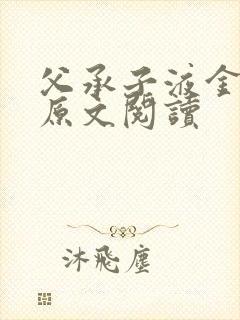 父承子液金
原文閱讀
沐飛塵